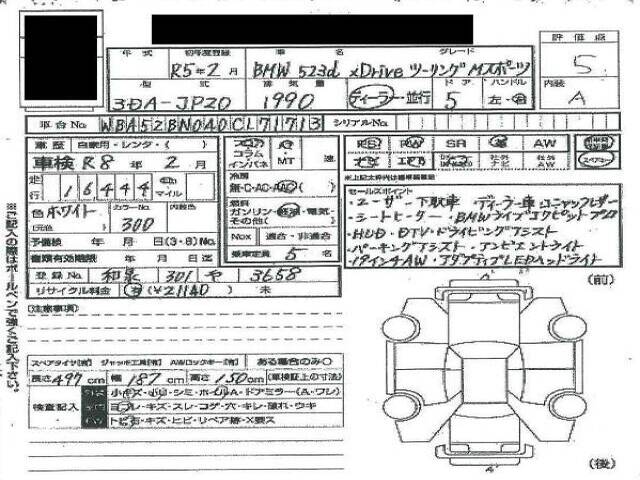 年式 初年度登録 車名 グレード 評価点
R5年2月 BMW 523d xDrive ツーリング Mスポーツ 5
型式 排気量 ドア ハンドル 内装
3DA-JP20 1990 ディーラー・並行 5 左・右 A
車台No WBA52BN040CL71713 シリアルNo.
車歴 自家用・レンタ・( )
コラム・インパネ MT 速
PS PW SR AW
車検 R8年2月
走行 16444 マイル
冷房
無・C・AC・AAC
社外ナビ 社外AW
色 ホワイト カラーNo. 内装色
(元色) 300
燃料
ガソリン・軽油・電気・
その他( )
予備検 年 月 日(3・8)No.
Nox 適合・非適合
書類有効期限 年 月 日迄
乗車定員 5 名
登録No. 和泉 301 や 3658
リサイクル料金 有(¥21140) 未
セールスポイント
・ユーザー下取車・ディーラー車・コニャックレザー
・シートヒーター・BMWライブコクピットプロ
・HUD・DTV・ドライビングアシスト
・パーキングアシスト・アンビエントライト
・19インチAW・アダプティブLEDヘッドライト
(注意事項)
(前)
スペアタイヤ[有] ジャッキ工具[有] AWロックキー[有] ある場合のみ○
長さ 497cm 幅 187cm 高さ 150cm (車検証上の寸法)
検査記入
小キズ・小凹・シミ・ポール・A・ドアミラー(A・ワレ)
ヨゴレ・キズ・スレ・コゲ・穴・キレ・破れ・ウキ
トビ石・キズ・ヒビ・リペア跡・X要ス
(後)
※ご記入の際はボールペンで強くご記入下さい。